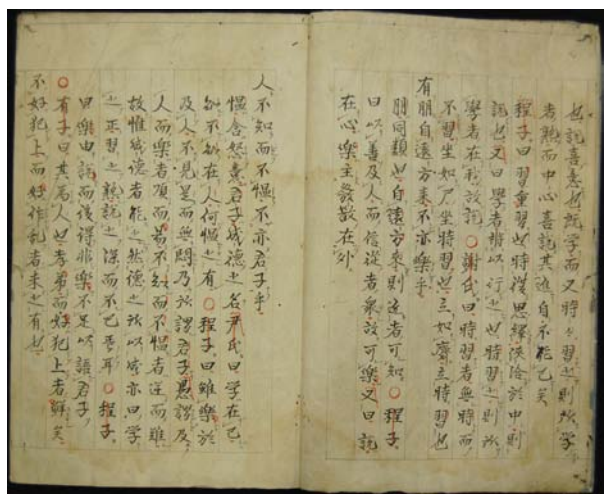 也說喜意也既学而又時々習之則所学
者熟而中心喜說其進自不能已矣
程子曰習重習也時復思繹浹洽於中則
説也又曰學者將以行之也時習之則所
學者在我故說○謝氏曰時習者無時而
不習坐如尸坐時習也立如齊立時習也
有朋自遠方来不亦樂乎
朋同類也自遠方来則近者可知○程子
曰以善及人而信從者衆故可樂又曰說
在心樂主發散在外
人不知而不慍不亦君子乎
慍含怒意君子成德之名尹氏曰学在己
知不知在人何慍之有○程子曰雖樂於
及人不見是而無悶乃所謂君子愚謂及
人而樂者順而易不知而不慍者逆而難
故惟成德者能之然德之所以成亦曰学
之正習之熟說之深而不已焉耳○程子
曰樂由說而後得非樂不足以語君子
○有子曰其爲人也孝弟而好犯上者鮮矣
不好犯上而好作乱者未之有也